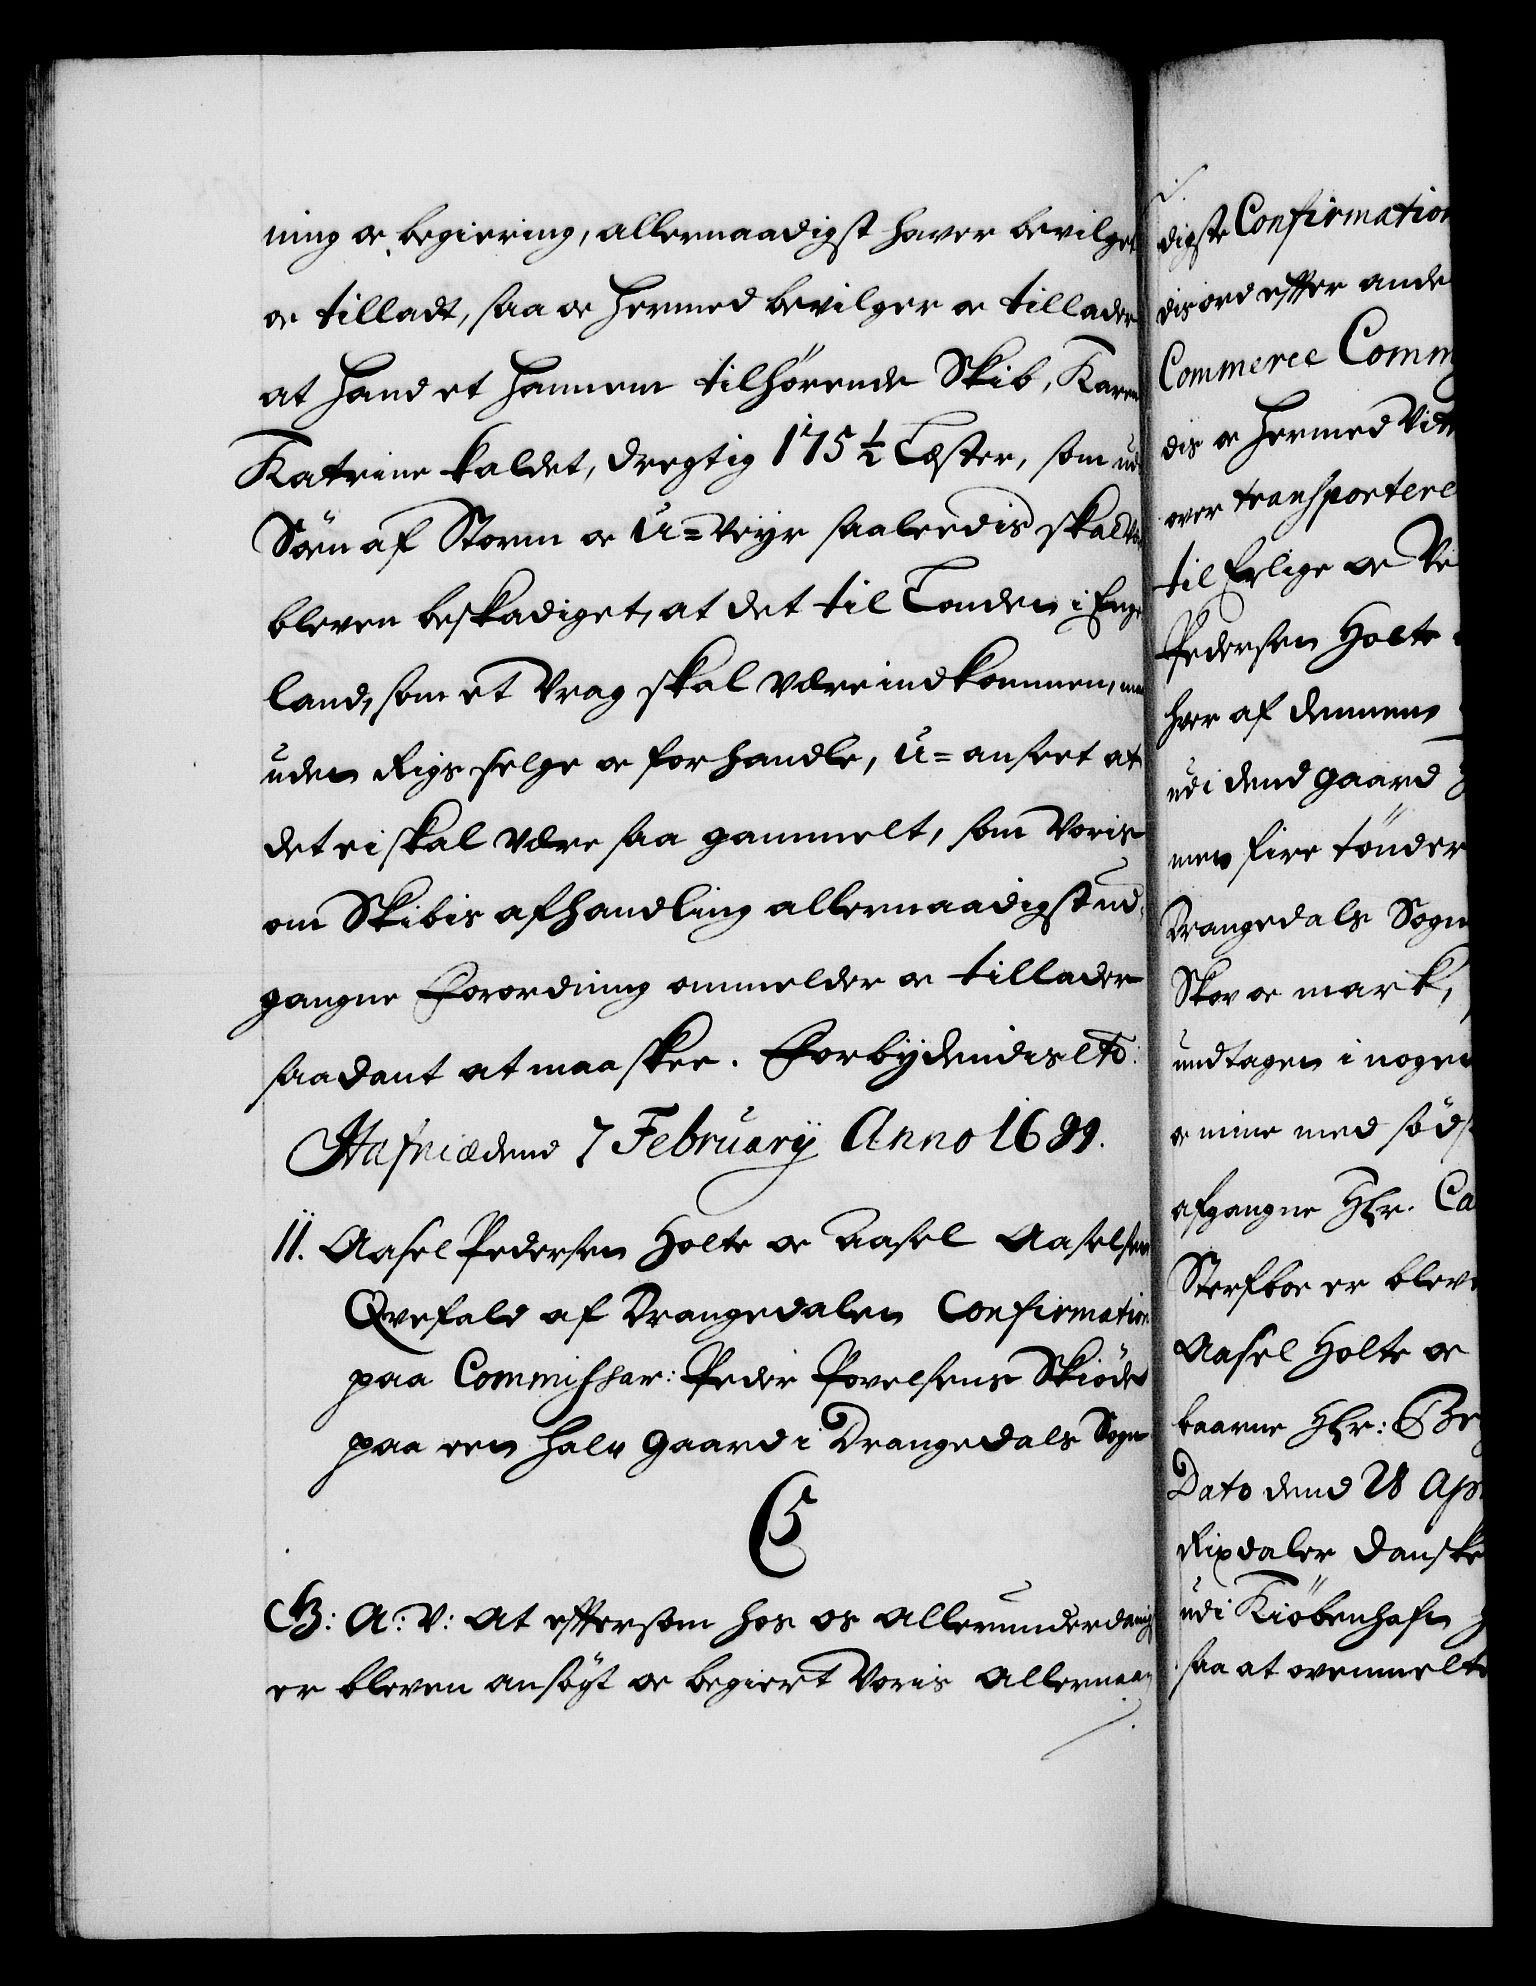 ning oc begiering, allernaadigst haver bevilget
oc tilladt, saa oc hermed bevilger oc tillader
at hand et hannem tilhörende Skib, Karen
Katrine kaldet, dregtig 175 1/2 Læster, som ud
Söen af Storm oc U=Veyr saaleedis skal
bleven beskadiget, at det til Londen i Enge
land, som et Vrag skal være indkommen, maa
uden Rigs selge oc forhandle, U=anseet at
det ei skal være saa gammelt, som Voris
om Skibis afhandling allernaadigst ud=
gangne Forordning ommelder oc tillader
saadant at maa skee. Forbydendis etc:
Hafniæ dend 7 Februarij Anno 1689.
11. Aasel Pedersen Holte oc Aasel Aaselsen
Qvefald af Drangedalen Confirmation
paa Commissar: Peder Povelsens Skiöde
paa een halv Gaard i Drangedals Sogn
C5
G: A: V: At effersom hos os allerunderdanigst
er bleven ansögt oc begiert Voris Allernaa
digste Confirmation
dis ord effter ande
Commerce Comm
dis oc hermed Vit
over transportere
til Erlige oc Ve
Pedersen Holte
hver af dennem
udi dend gaard
men fire tönder
Drangedals Sogn
Skov oc mark,
undtagen i nogen
oc mine med söds
afgangne Hr. Ca
Sterfboe er bleve
Aasel Holte oc
baarne Hr: Br
Dato dend 28 Apr
Rixdaler Danske
udi Kiöbenhafn
saa at ovenmelte